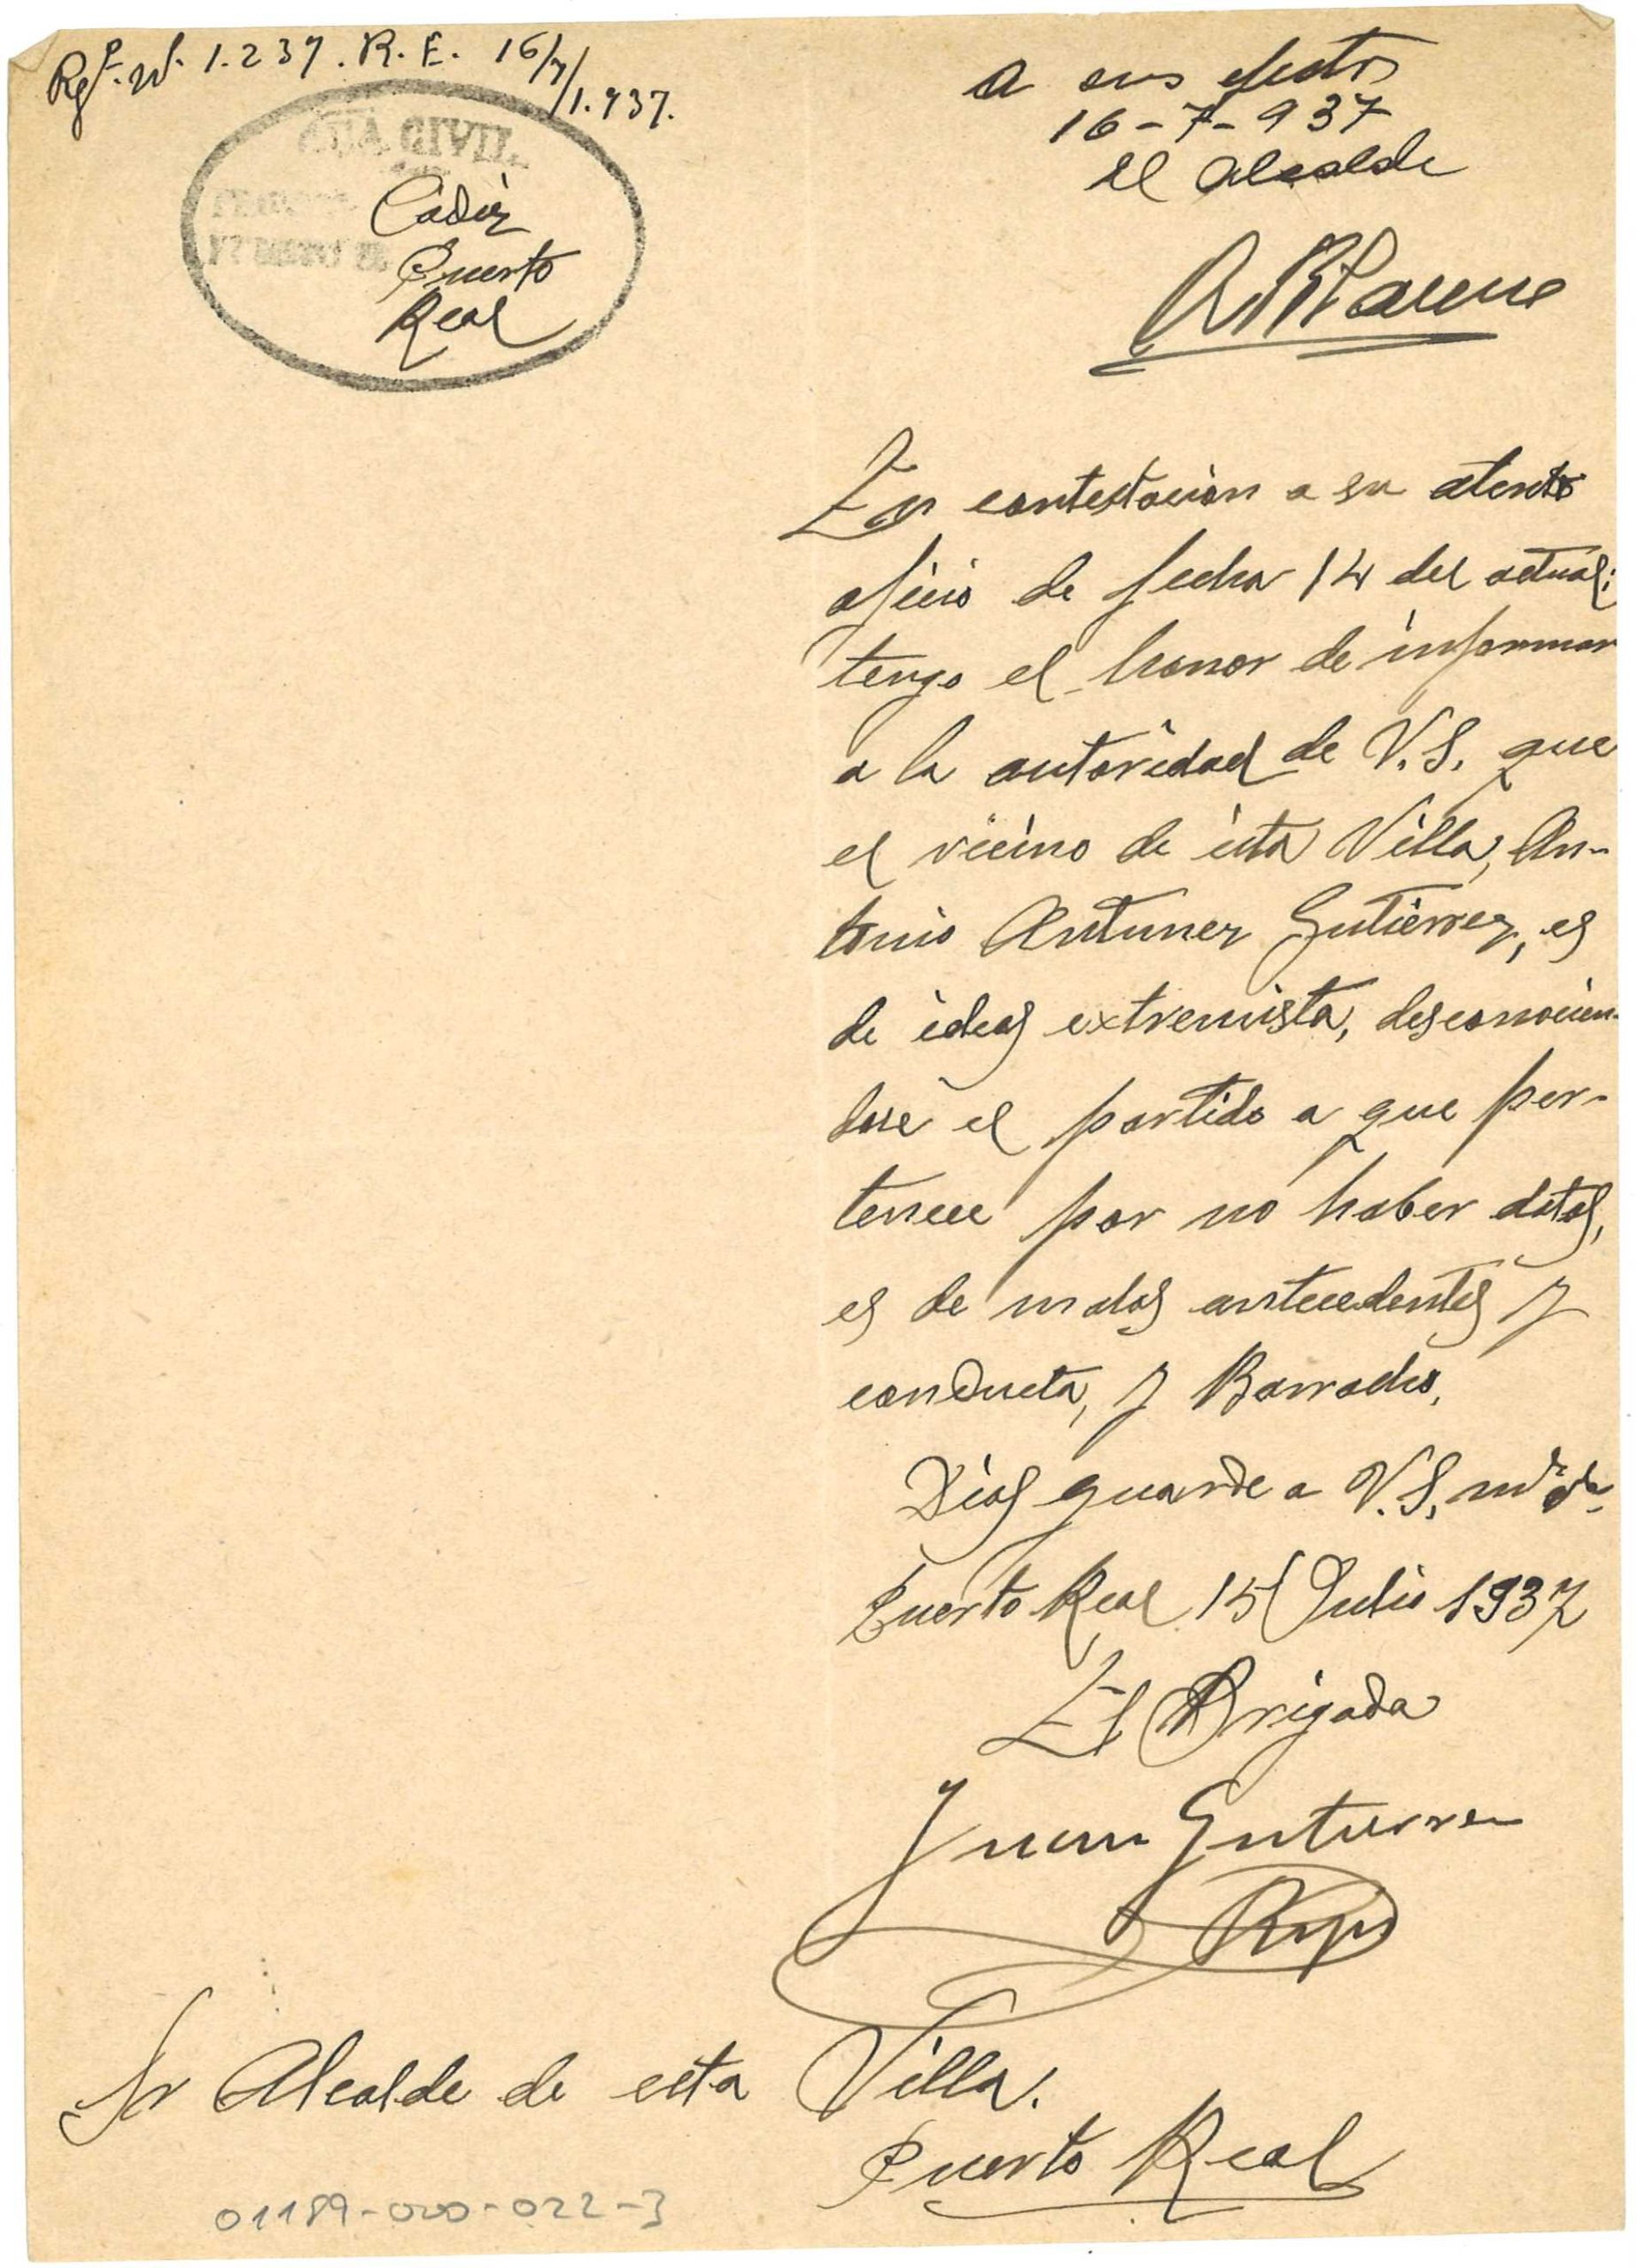 Rgº. Nº. 1.237. R.E. 16/7/1.937.
CIVIL
Cádiz
Puerto
Real
A sus efectos
16-7-937
El Alcalde
En contestación a su atento
oficio de fecha 14 del actual;
tengo el honor de informar
a la autoridad de V.S. que
el vecino de ésta Villa, An-
tonio Antunez Gutiérrez, es
de ideas extremista, desconocien-
dose el partido a que per-
tenece por no haber datos,
es de malos antecedentes y
conducta, y Borracho.
Dios guarde a V.S. ms as.
Puerto Real 15 Julio 1937
El Brigada
Juan Gutierrez
Sr Alcalde de esta Villa.
Puerto Real
01189-000-022-3